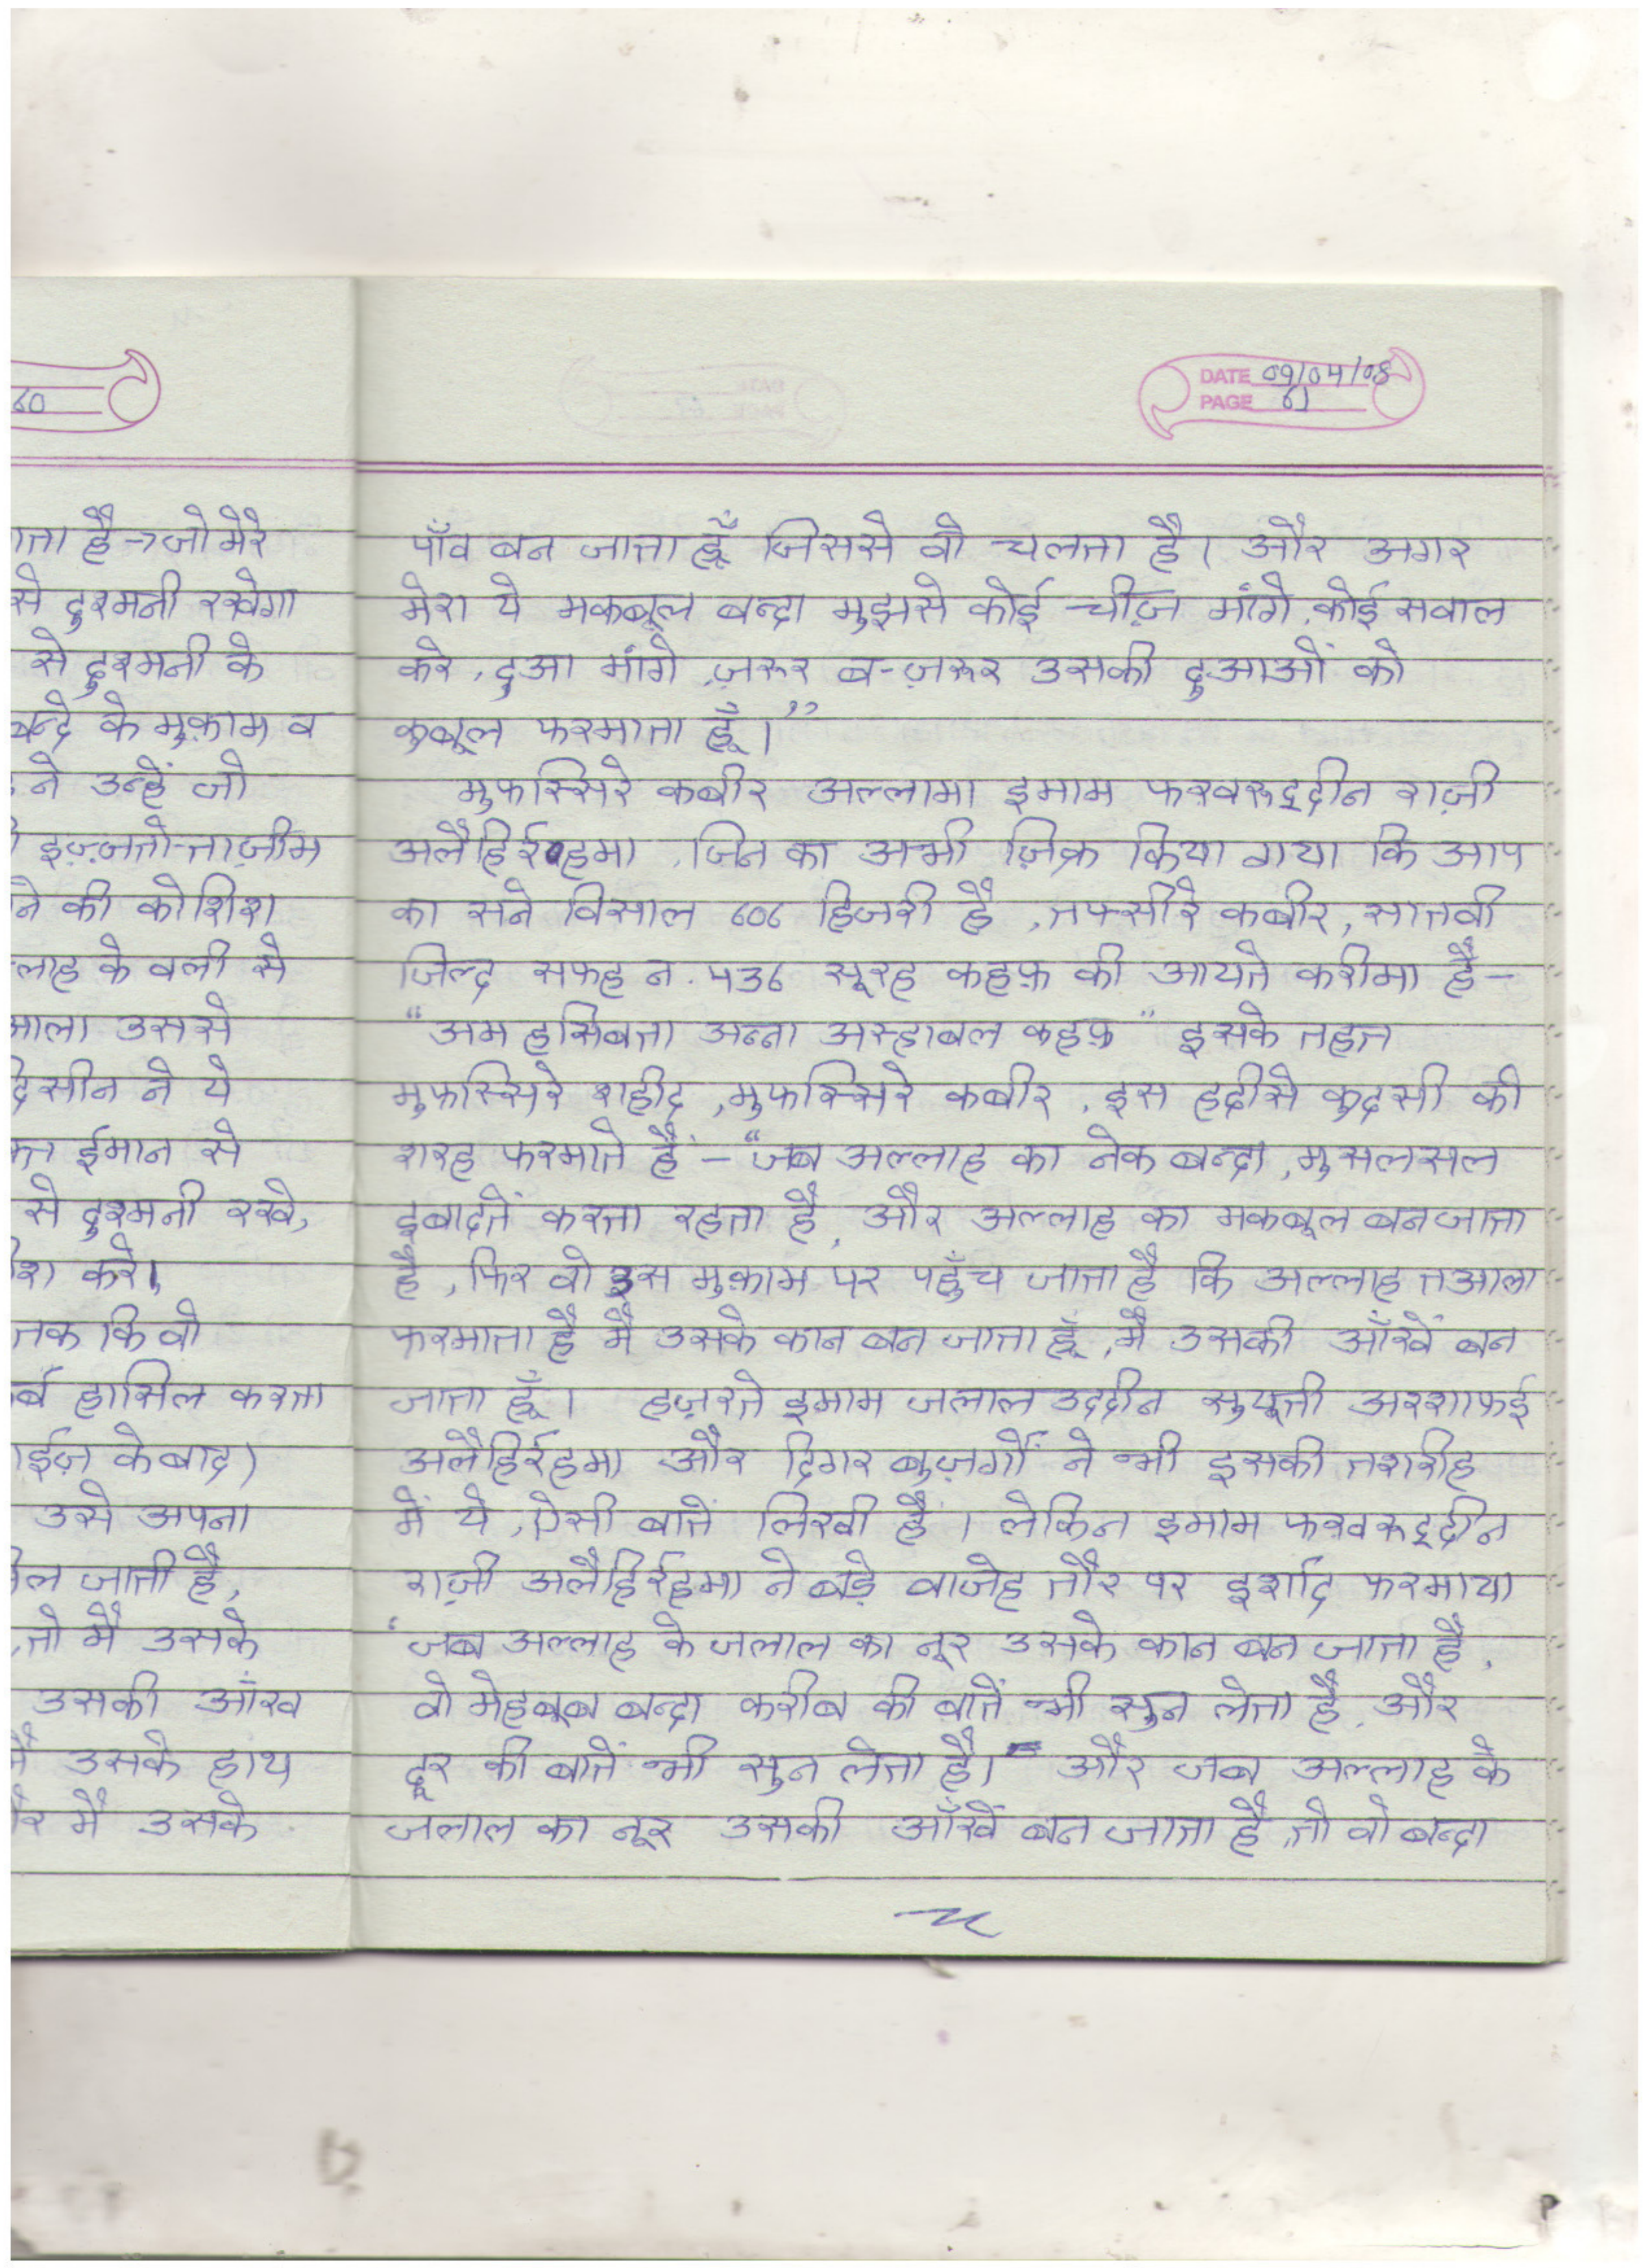 60
ाता है→जो मेरे
से दुश्मनी रखेगा
से दुश्मनी के
बन्दे के मुक़ाम व
ने उन्हें जो
इज़्ज़तो-ताज़ीम
ने की कोशिश
ल्लाह के वली से
आला उससे
सीन ने ये
ईमान से
से दुश्मनी रखे,
करे।
तक कि वो
र्ब हासिल करता
ाईज़ के बाद)
उसे अपना
जाती है,
,तो मैं उसके
उसकी आँख
मैं उसके हाथ
र मैं उसके
DATE 09/04/08
PAGE 61
पाँव बन जाता हूँ जिससे वो चलता है। और अगर
मेरा ये मकबूल बन्दा मुझसे कोई चीज़ मांगे, कोई सवाल
करे, दुआ मांगे, ज़रूर ब-ज़रूर उसकी दुआओं को
कुबूल फरमाता हूँ।”
मुफस्सिरे कबीर अल्लामा इमाम फख़रुद्दीन राज़ी
अलैहिर्रहमा, जिन का अभी ज़िक्र किया गया कि आप
का सने विसाल 606 हिजरी है, तफ्सीरे कबीर, सातवी
जिल्द सफह न. 436 सूरह कहफ़ की आयते करीमा है-
“अम हसिबता अन्ना अस्हाबल कहफ़” इसके तहत
मुफस्सिरे शहीद, मुफस्सिरे कबीर, इस हदीसे कुदसी की
शरह फरमाते हैं - “जब अल्लाह का नेक बन्दा, मुसलसल
इबादतें करता रहता है, और अल्लाह का मकबूल बन जाता
है, फिर वो इस मुक़ाम पर पहुँच जाता है कि अल्लाह तआला
फरमाता है मैं उसके कान बन जाता हूँ, मैं उसकी आँखें बन
जाता हूँ। हज़रते इमाम जलाल उददीन सुयूती अश्शाफई
अलैहिर्रहमा और दिगर बुज़र्गों ने भी इसकी तशरीह
में ये, ऐसी बातें लिखी हैं। लेकिन इमाम फख़रुद्दीन
राज़ी अलैहिर्रहमा ने बड़े वाजेह तौर पर इर्शाद फरमाया
“जब अल्लाह के जलाल का नूर उसके कान बन जाता है,
वो मेहबूब बन्दा करीब की बातें भी सुन लेता है, और
दूर की बातें भी सुन लेता है। और जब अल्लाह के
जलाल का नूर उसकी आँखें बन जाता है, तो वो बन्दा